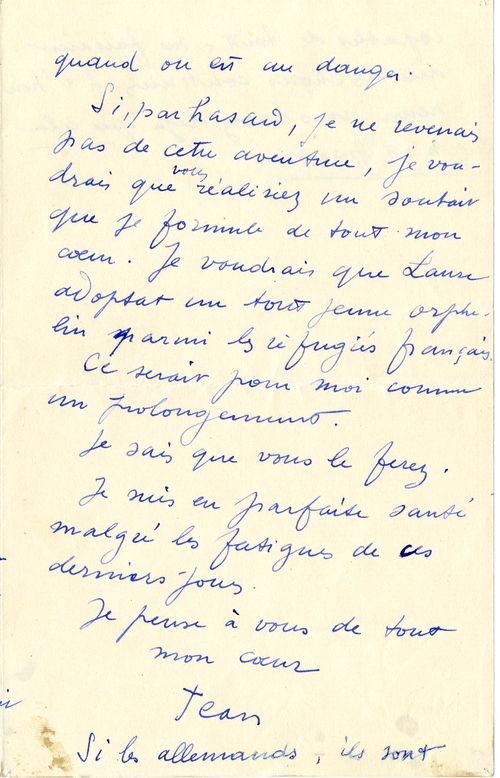 quand on est au danger.
Si, par hasard, je ne revenais
pas de cette aventure, je vou-
drais que vous réalisiez un souhait
que je formule de tout mon
cœur. Je voudrais que Laure
adoptat un tout jeune orphe-
lin parmi les réfugiés français.
Ce serait pour moi comme
un prolongement.
Je sais que vous le ferez.
Je suis en parfaite santé
malgré les fatigues de ces
derniers jours.
Je pense à vous de tout
mon cœur
Jean
Si les allemands, ils sont